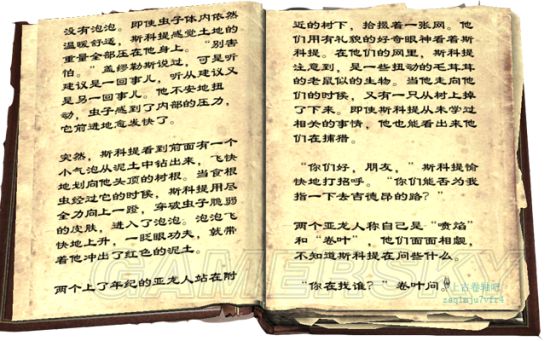 没有泡泡。即使虫子体内依然
温暖舒适，斯科提感觉土地的
重量全部压在他身上。“别害
怕。”盖缪勒斯说过，可是听
建议是一回事儿，听从建议又
是另一回事儿。他不安地扭
动，虫子感到了内部的压力，
它前进地愈发快了。
突然，斯科提看到前面有一个
小气泡从泥土中钻出来，飞快
地划向他头顶的树根。当食根
虫经过它的时候，斯科提用尽
全力向上一蹬，穿破虫子脆弱
的皮肤，进入了泡泡。泡泡飞
快地上升，一眨眼功夫，就带
着他冲出了红色的泥土。
两个上了年纪的亚龙人站在附
近的树下，拾掇着一张网。他
们用有礼貌的好奇眼神看着斯
科提。在他们的网里，斯科提
看到的，是一些扭动的毛茸茸
的老鼠似的生物。当他走向他
们的时候，又有一只从树上掉
了下来。即使斯科提从未学过
相关的事情，他也能看出来他
们在捕猎。
“你们好，朋友，”斯科提愉
快地打招呼。“你们能否为我
指一下去吉德昂的路？”
两个亚龙人称自己是“喷焰”
和“卷叶”，他们面面相觑，
不知道斯科提在问些什么。
“你在找谁？”卷叶问
上古卷轴吧
GAMERSKY